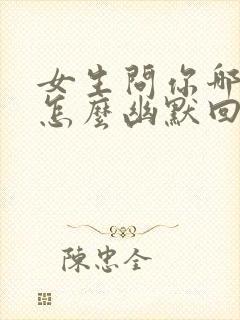 女生問你哪
怎麼幽默回
陳忠全